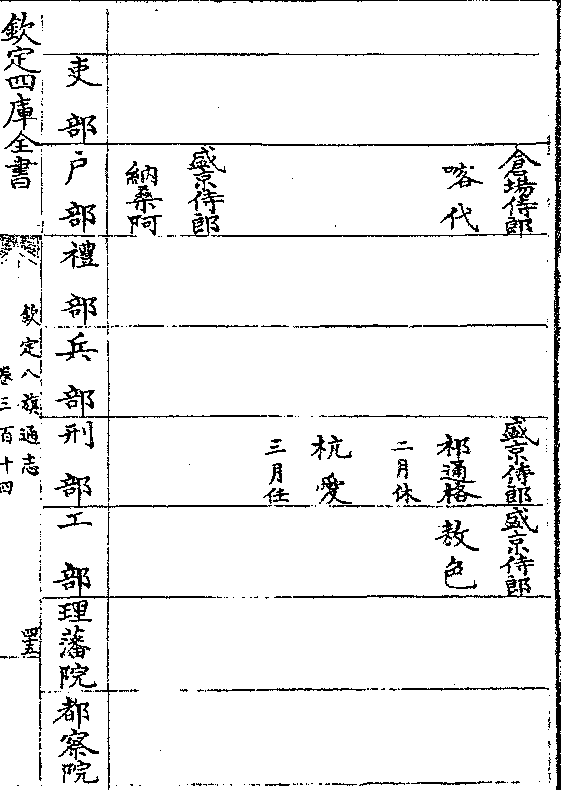 倉場侍郎
喀代
盛京侍郎
納桑阿
盛京侍郎
祁通格
二月休
杭愛
三月任
盛京侍郎
敖色
吏部
戶部
禮部
兵部
刑部
工部
理藩院
都察院
欽定四庫全書
欽定八旗通志
卷三百十四